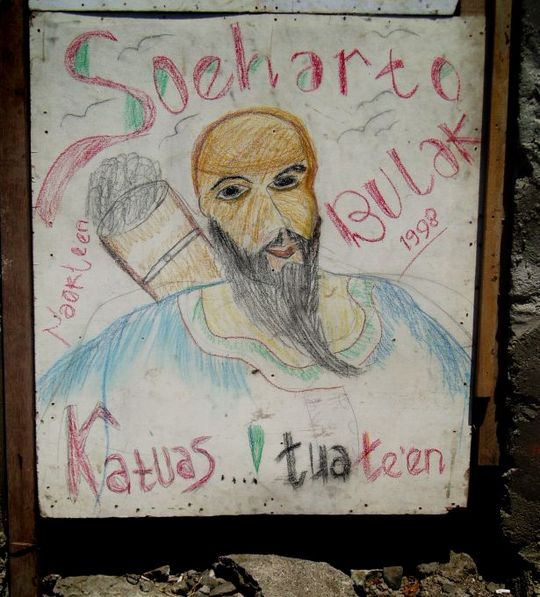 Soeharto
BULAK
1998
Naokleen
Katuas....! tuate'en